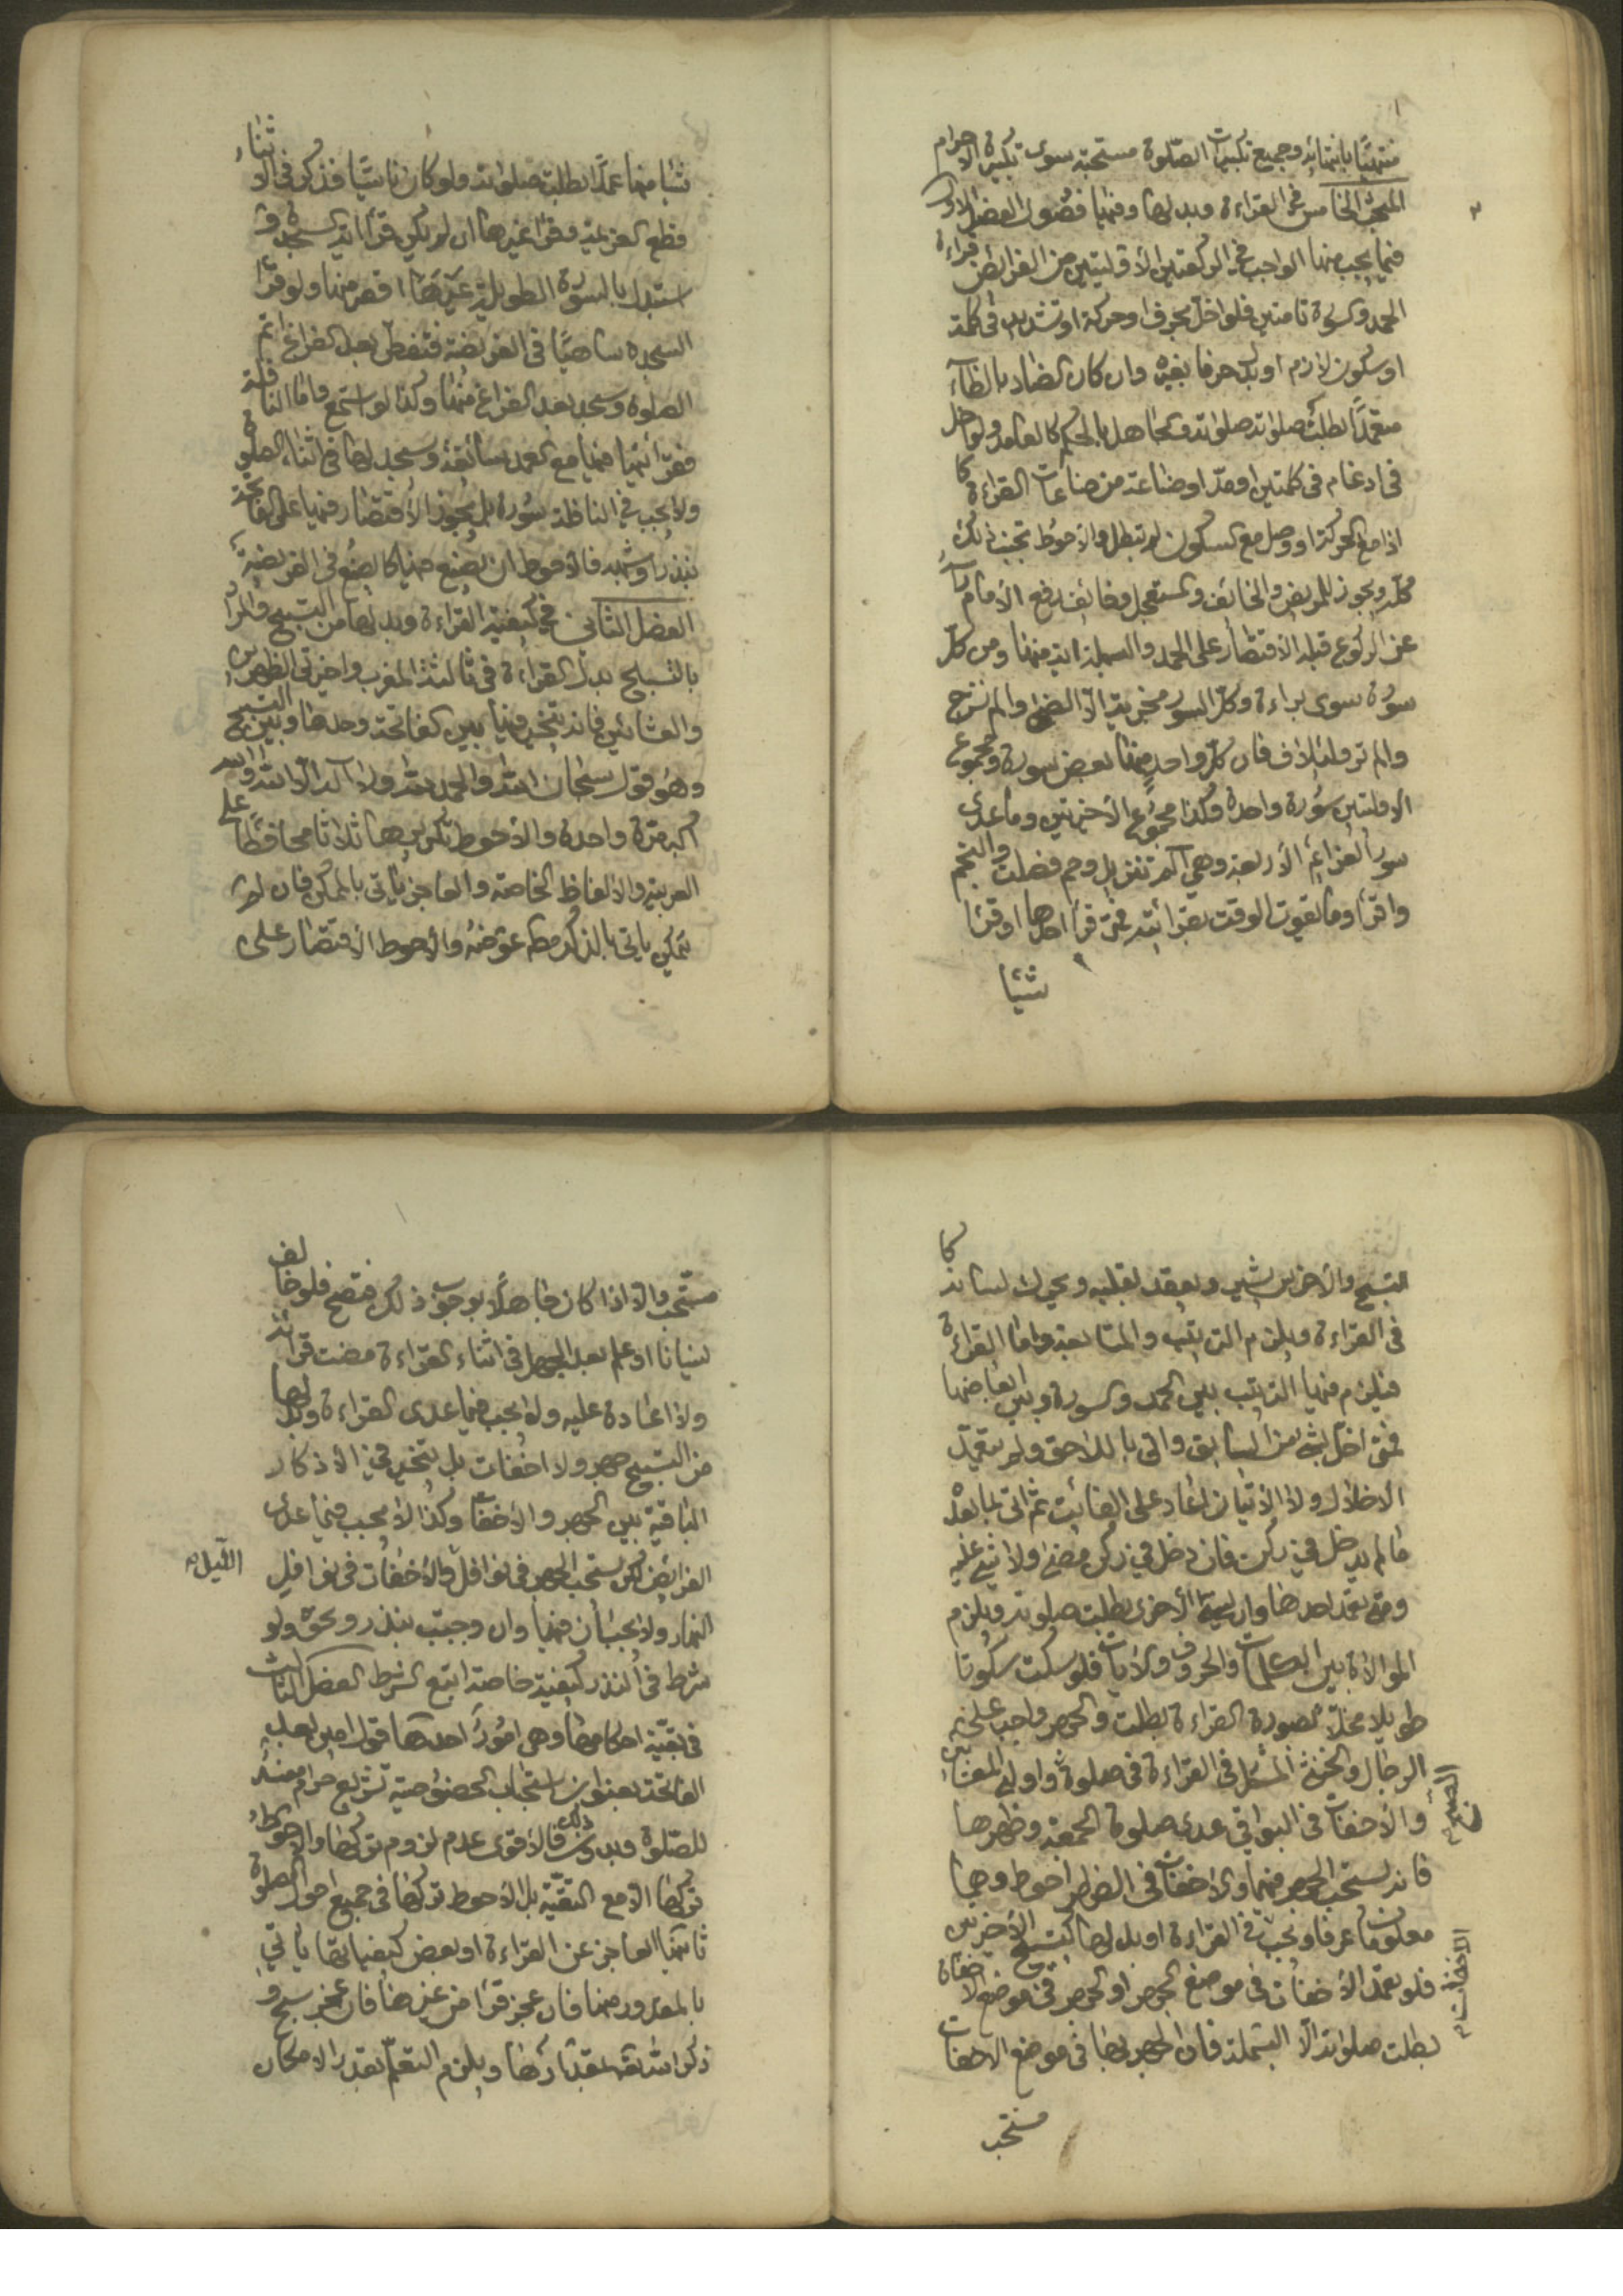 منتهيًا بانتهائه وجميع تكبيرات الصّلوة مستحبّة سوى تكبيرة الاحرام
المبحث الخامس في القراءة وبدلها وفيها فصول الفصل الاول
فيما يجب منها الواجب في الركعتين الأوليتين من الفرائض قراءة
الحمد وسورة تامتين فلو اخل بحرف او حركة او تشديد في كلمة
او سكون لازم او بدل حرفا بغيره وان كان الضاد بالظآء
متعمّدًا بطلت صلوته وجاهل بالحكم كالعامد ولو اخل
في ادغام في كلمتين او مدّ او صناعة من صناعات القراءة كا
اذا مع الحركة او وصل مع السكون لم تبطل والاحوط تجنب ذلك
كله ويجوز للمريض والخائف والمستعجل وخائف رفع الأمام رأسه
عن الركوع قبله الاقتصار على الحمد والبسملة اية منها ومن كل
سورة سوى براءة وكل السور مجزية الا الضحى والم نشرح
والم تر ولئيلاف فان كل واحد منها بعض سورة ومجموع
الاولتين سورة واحدة وكذا مجموع الأخيرتين وما عدى
سور العزائم الأربعة وهي الم تنزيل وحم فصلت والنجم
واقرأ وما يفوت الوقت بقرائته فمتى قرأ احدها او قرأ
شيئا
شيئا منها عمدًا بطلت صلوته ولو كان ناسيًا فذكر في الاثناء
قطع العزيمة وقرأ غيرها ان لم يكن قرأ اية السجدة و
استبدل بالسورة الطويلة غيرها اقصر منها ولو قرأ
السجدة ساهيًا في الفريضة فتفطن بعد الفراغ اتم
الصلوة وسجد بعد الفراغ منها وكذا لو استمع واما النافلة
فقرائتها فيها مع العمد سائغة ويسجد لها في اثناء الصلوة
ولا يجب في النافلة سورة بل يجوز الأقتصار فيها على الفاتحة
بنذر وشبهه فالأحوط ان يصنع فيها كما يصنع في الفريضة
الفصل الثاني في كيفية القراءة وبدلها من التسبيح والمراد
بالتسبيح بدل القراءة في ثالثة المغرب واخيرتي الظهرين
والعشائين فانه يتخير فيها بين الفاتحة وحدها وبين التسبيح
وهو قول سبحان الله والحمد لله ولا اله الا الله والله
اكبر مرّة واحدة والأحوط تكريرها ثلاثا محافظًا على
العربية والالفاظ الخاصة والعاجز يأتي بالممكن فان لم
يتمكن ياتي بالذكر مط عوضه والأحوط الأقتصار على
التسبيح والأخرس يشير ويعقد بقلبه ويحرك لسانه كا
في القراءة ويلزم الترتيب والمتابعة واما القراءة
فيلزم فيها الترتيب بين الحمد والسورة وبين ابعاضها
فمتى اخل بشئ من السابق واتى باللاحق ولم يتعمّد
الاخلال ولا الأتيان اعاد على الفائت ثم اتى بما بعده
ما لم يدخل في ركن فان دخل في ركن مضى ولا شئ عليه
ومتى تعمد احدهما وان نسي الأخرى بطلت صلوته ويلزم
الموالاة بين الكلمات والحروف والايات فلو سكت سكوتا
طويلا مخلّا بصورة القراءة بطلت والجهر واجب على
الرجال والخنثى المشكل في القراءة في صلوة الصبح واولى المغربين
والأخفات في البواقي عدى صلوة الجمعة وظهرها
فانه يستحب الجهر فيهما والاخفات في الظهر احوط وهما
معلومان عرفا ويجب في القراءة او بدلها كتسبيح الأخيرتين الاخفات
فلو تعمد الأخفات في موضع الجهر او الجهر في موضع الاخفات
بطلت صلوته الا البسملة فان الجهر بها في موضع الاخفات
مستحب
مستحب والا اذا كان جاهلًا بوجوب ذلك فتصح فلو خالف
نسيانا او علم بعد الجهل في اثناء القراءة مضت قرائته
ولا اعادة عليه ولا يجب فيما عدى القراءة وبدلها
من التسبيح جهر ولا اخفات بل يتخير في الأذكار
الباقية بين الجهر والأخفات وكذا لا يجب فيما عدى
الفرائض لكن يستحب الجهر في نوافل الليل والأخفات في نوافل
النهار ولا يجبان فيها وان وجبت بنذر ونحوه ولو
شرط في النذر كيفية خاصة اتبع الشرط الفصل الثالث
في بقيّة احكامها وهي امورٌ احدها قول امين بعد
الفاتحة بعنوان استحباب الخصوصية تشريع حرام مفسد
للصّلوة وبدون ذلك فالأقوى عدم لزوم تركها والأحوط
تركها الا مع التقيّة بل الأحوط تركها في جميع احوال الصلوة
ثانيها العاجز عن القراءة او بعض كيفياتها ياتي
بالمقدور منها فان عجز قرأ من غيرها فان عجز سبح و
ذكر الله تعالى بقدرها ويلزم التعلّم بقدر الامكان